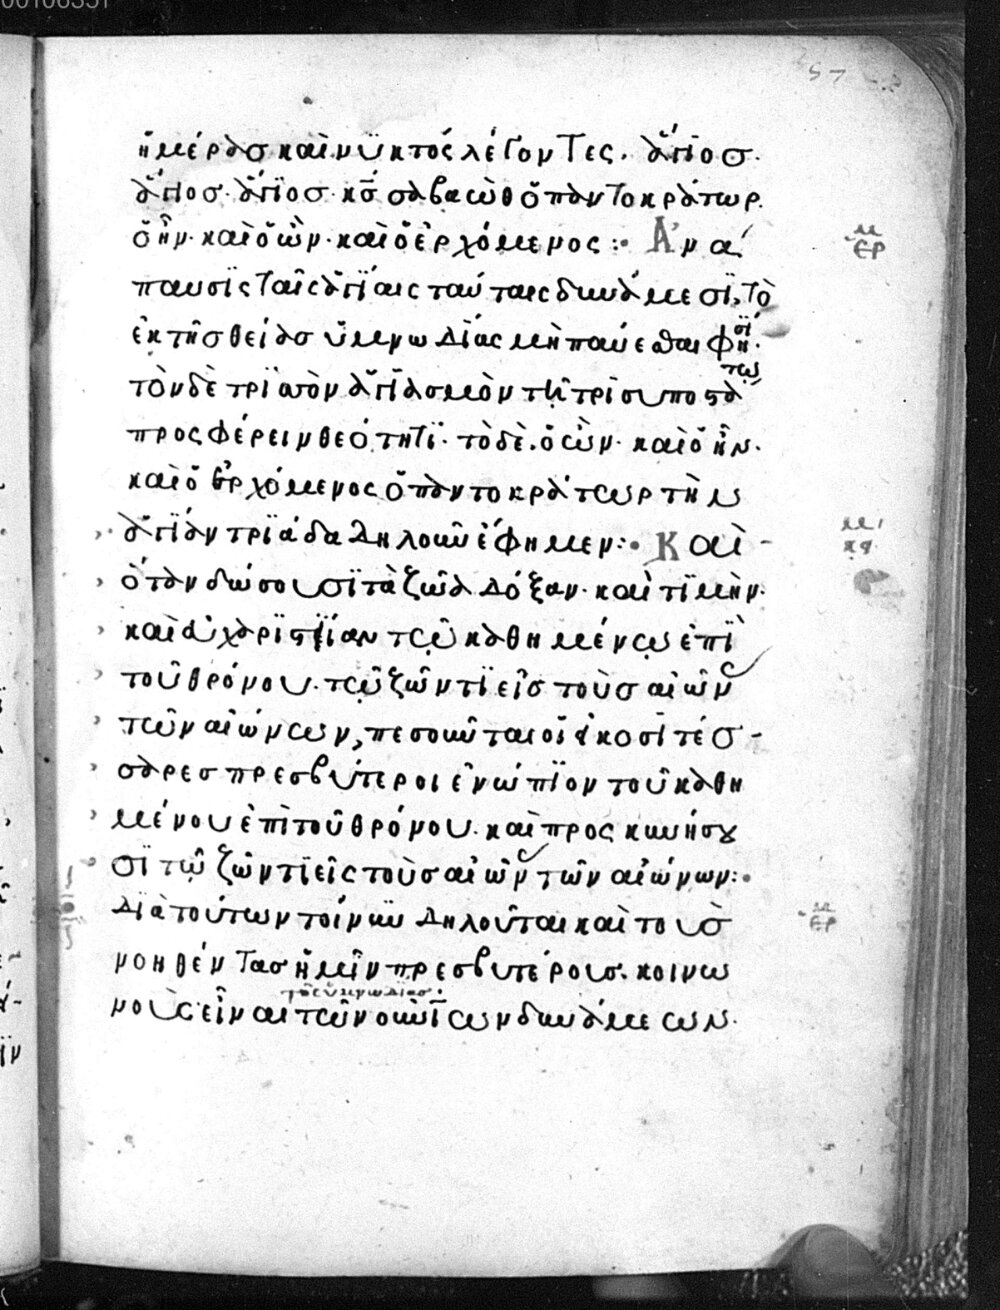 57
ἡμέρασ καὶ νϋκτός λέγοντες. ἅγϊοσ.
ἅγϊοσ. ἅγϊοσ. κ̅σ̅ σαβαὼθ ὁ παντοκράτωρ.
ὁ ἦν. καὶ ὁ ὢν. καὶ ὁ ἐρχόμενος :· Ἀνα
παυσϊς ταῖς ἁγΐαις ταύταις δυνάμεσϊ, τὸ
ἐκ τῆσ θείασ ὑμνωδΐας μὴ παύεσθαι φησΐ.
τὸν δὲ τρϊττὸν ἁγϊασμὸν τῆ τρϊσυποστάτω
προσφέρειν θεότητϊ. τὸ δὲ. ὁ ὢν. καὶ ὁ ἦν.
καὶ ὁ ἐρχόμενος ὁ παντοκράτωρ τὴν
ἁγΐαν τρϊάδα δηλοῦν ἔφημεν :· Καὶ
ὅταν δώσουσϊ τὰ ζῶα δόξαν. καὶ τϊμὴν.
καὶ εὐχαρϊστΐαν τῷ καθημένω ἐπὶ
τοῦ θρόνου. τῷ ζῶντϊ εἰσ τοὺσ αἰῶν
τῶν αἰώνων, πεσοῦνται οἱ εἴκοσϊ τέσ-
σαρεσ πρεσβύτεροι ἐνώπϊον τοῦ καθη
μένου ἐπὶ τοῦ θρόνου. καὶ προσκυνήσου
σϊ τῶ ζῶντϊ εἰς τοὺσ αἰῶν τῶν αἰώνων :·
Δϊὰ τούτων τοίνϋν δηλοῦται καὶ τοὺσ
νοηθέντασ ἡμῖν πρεσβυτέρουσ. κοινω
τῆς ὑμνωδΐασ.
νοὺς εἶναι τῶν οὐνΐων δυνάμεων.
ΕΡ
ΕΡ